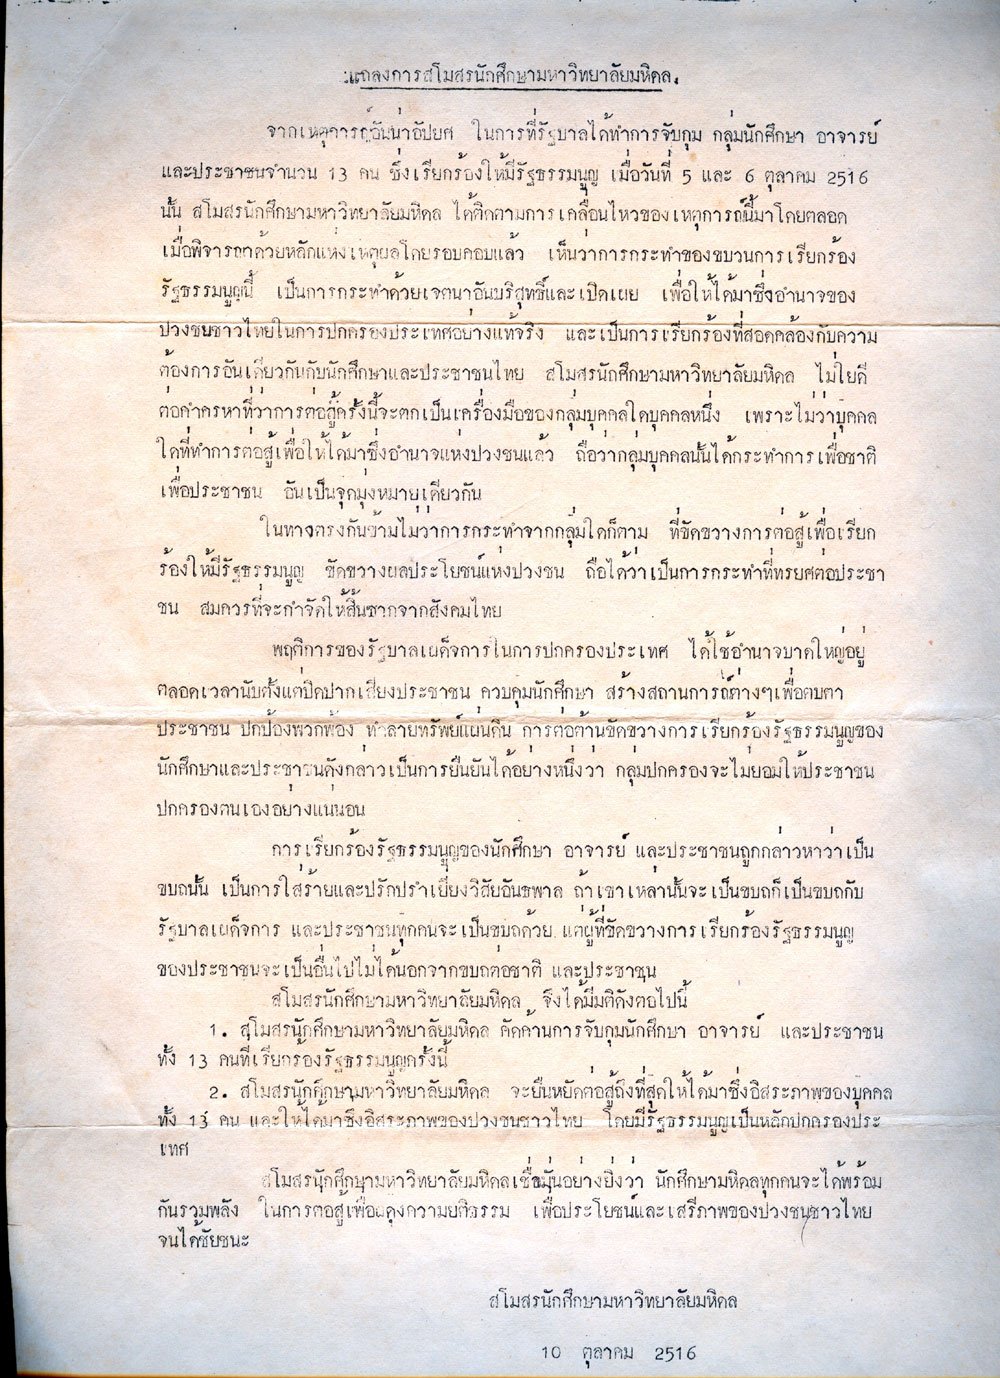 แถลงการสโมสรนักศึกษามหาวิทยาลัยมหิดล.
จากเหตุการณ์อันน่าอัปยศ ในการที่รัฐบาลได้ทำการจับกุม กลุ่มนักศึกษา อาจารย์
และประชาชนจำนวน 13 คน ซึ่งเรียกร้องให้มีรัฐธรรมนูญ เมื่อวันที่ 5 และ 6 ตุลาคม 2516
นั้น สโมสรนักศึกษามหาวิทยาลัยมหิดล ได้ติดตามการเคลื่อนไหวของเหตุการณ์นี้มาโดยตลอด
เมื่อพิจารณาด้วยหลักแห่งเหตุผลโดยรอบคอบแล้ว เห็นว่าการกระทำของขบวนการเรียกร้อง
รัฐธรรมนูญนี้ เป็นการกระทำด้วยเจตนาอันบริสุทธิ์และเปิดเผย เพื่อให้ได้มาซึ่งอำนาจของ
ปวงชนชาวไทยในการปกครองประเทศอย่างแท้จริง และเป็นการเรียกร้องที่สอดคล้องกับความ
ต้องการอันเดียวกันกับนักศึกษาและประชาชนไทย สโมสรนักศึกษามหาวิทยาลัยมหิดล ไม่ใยดี
ต่อคำครหาที่ว่าการต่อสู้ครั้งนี้จะตกเป็นเครื่องมือของกลุ่มบุคคลใดบุคคลหนึ่ง เพราะไม่ว่าบุคคล
ใดที่ทำการต่อสู้เพื่อให้ได้มาซึ่งอำนาจแห่งปวงชนแล้ว ถือว่ากลุ่มบุคคลนั้นได้กระทำการเพื่อชาติ
เพื่อประชาชน อันเป็นจุดมุ่งหมายเดียวกัน
ในทางตรงกันข้ามไม่ว่าการกระทำจากกลุ่มใดก็ตาม ที่ขัดขวางการต่อสู้เพื่อเรียก
ร้องให้มีรัฐธรรมนูญ ขัดขวางผลประโยชน์แห่งปวงชน ถือได้ว่าเป็นการกระทำที่ทรยศต่อประชา
ชน สมควรที่จะกำจัดให้สิ้นซากจากสังคมไทย
พฤติการของรัฐบาลเผด็จการในการปกครองประเทศ ได้ใช้อำนาจบาตใหญ่อยู่
ตลอดเวลานับตั้งแต่ปิดปากเสียงประชาชน ควบคุมนักศึกษา สร้างสถานการณ์ต่างๆเพื่อตบตา
ประชาชน ปกป้องพวกพ้อง ทำลายทรัพย์แผ่นดิน การต่อต้านขัดขวางการเรียกร้องรัฐธรรมนูญของ
นักศึกษาและประชาชนดังกล่าวเป็นการยืนยันได้อย่างหนึ่งว่า กลุ่มปกครองจะไม่ยอมให้ประชาชน
ปกครองตนเองอย่างแน่นอน
การเรียกร้องรัฐธรรมนูญของนักศึกษา อาจารย์ และประชาชนถูกกล่าวหาว่าเป็น
ขบถนั้น เป็นการใส่ร้ายและปรักปรำเยี่ยงวิสัยอันธพาล ถ้าเขาเหล่านั้นจะเป็นขบถก็เป็นขบถกับ
รัฐบาลเผด็จการ และประชาชนทุกคนจะเป็นขบถด้วย แต่ผู้ที่ขัดขวางการเรียกร้องรัฐธรรมนูญ
ของประชาชนจะเป็นอื่นไปไม่ได้นอกจากขบถต่อชาติ และประชาชน
สโมสรนักศึกษามหาวิทยาลัยมหิดล จึงได้มีมติดังต่อไปนี้
1. สโมสรนักศึกษามหาวิทยาลัยมหิดล คัดค้านการจับกุมนักศึกษา อาจารย์ และประชาชน
ทั้ง 13 คนที่เรียกร้องรัฐธรรมนูญครั้งนี้
2. สโมสรนักศึกษามหาวิทยาลัยมหิดล จะยืนหยัดต่อสู้ถึงที่สุดให้ได้มาซึ่งอิสระภาพของบุคคล
ทั้ง 13 คน และให้ได้มาซึ่งอิสระภาพของปวงชนชาวไทย โดยมีรัฐธรรมนูญเป็นหลักปกครองประ
เทศ
สโมสรนักศึกษามหาวิทยาลัยมหิดลเชื่อมั่นอย่างยิ่งว่า นักศึกษามหิดลทุกคนจะได้พร้อม
กันรวมพลัง ในการต่อสู้เพื่อผดุงความยุติธรรม เพื่อประโยชน์และเสรีภาพของปวงชนชาวไทย
จนได้ชัยชนะ
สโมสรนักศึกษามหาวิทยาลัยมหิดล
10 ตุลาคม 2516